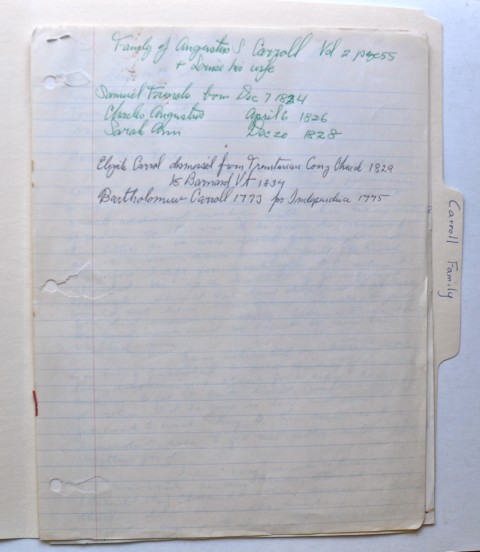 Family of Augustus S Carroll Vol 2 page 55
+ Louise his wife
Samuel Francis born Dec 7 1824
Charles Augustus April 6 1826
Sarah Ann Dec 20 1828
Carrol dismissed from Trinitarian Cong Church 1829
to Barnard Vt 1834
Bartholomew Carroll 1773 for Independence 1775
Carroll Family